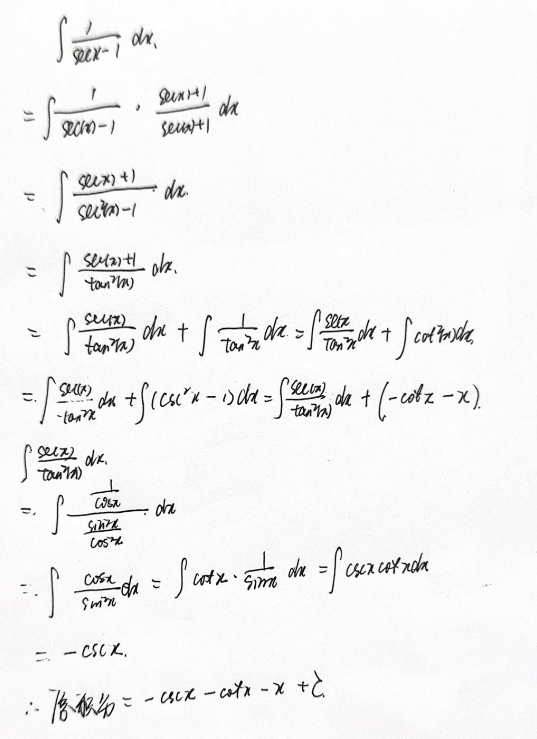 ∫ 1/(secx-1) dx.
= ∫ 1/(sec(x)-1) · (sec(x)+1)/(sec(x)+1) dx
= ∫ (sec(x)+1)/(sec²(x)-1) dx.
= ∫ (sec(x)+1)/(tan²(x)) dx.
= ∫ sec(x)/tan²(x) dx + ∫ 1/tan²x dx = ∫ secx/tan²x dx + ∫ cot²(x)dx.
= ∫ sec(x)/tan²x dx + ∫(csc²x-1)dx = ∫ sec(x)/tan²(x) dx + (-cotx-x).
∫ sec(x)/tan²(x) dx.
= ∫ (1/cosx)/(sin²x/cos²x) dx
= ∫ cosx/sin²x dx = ∫ cotx · 1/sinx dx = ∫ cscx cotx dx
= -cscx.
∴ 原积分 = -cscx - cotx - x + C.